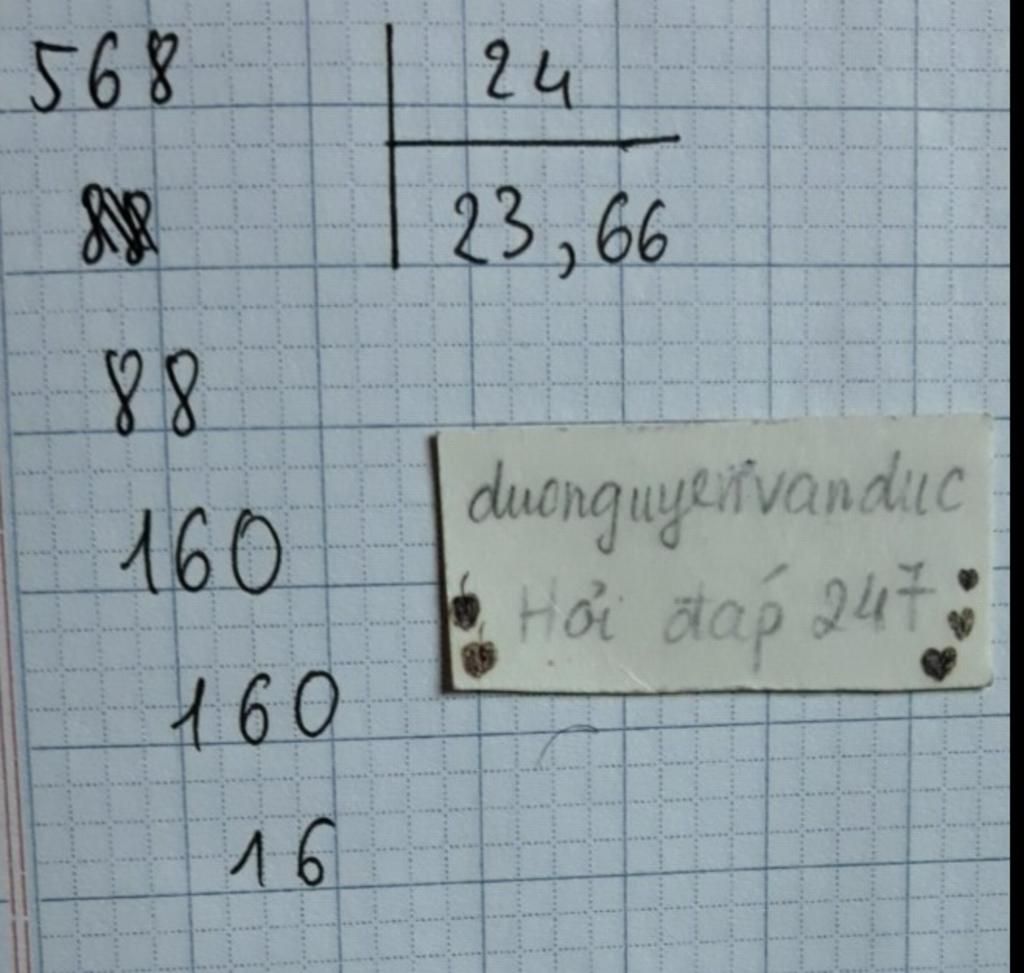 568 24
88
23,66
88
160
160
16
duonguyenvanduc
Hỏi đáp 247